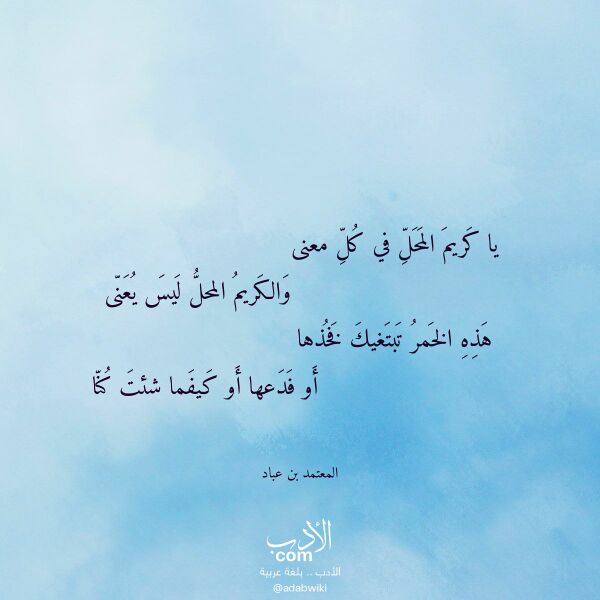 يا كَريمَ المَحَلِّ في كُلِّ معنى
وَالكَريمُ المحلُّ لَيسَ يُعَنّى
هَذِهِ الخَمرُ تَبتَغيكَ فَخُذها
أَو فَدَعها أَو كَيفَما شئتَ كُنّا
المعتمد بن عباد
الأدب
com
الأدب .. بلغة عربية
@adabwiki